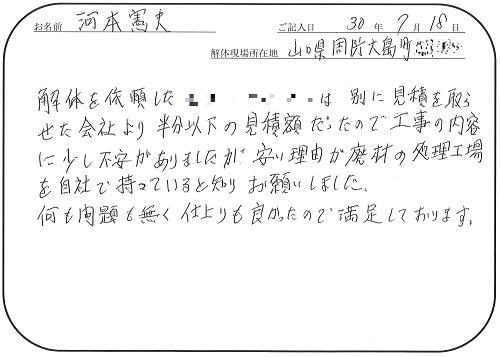 お名前 河本憲史 ご記入日 30 年 7 月 18 日
解体現場所在地 山口県周防大島町
解体を依頼した は 別に見積を取ら
せた会社より半分以下の見積額だったので工事の内容
に少し不安がありましたが 安い理由が廃材の処理工場
を自社で持っていると知りお願いしました。
何も問題も無く仕上りも良かったので満足しております。